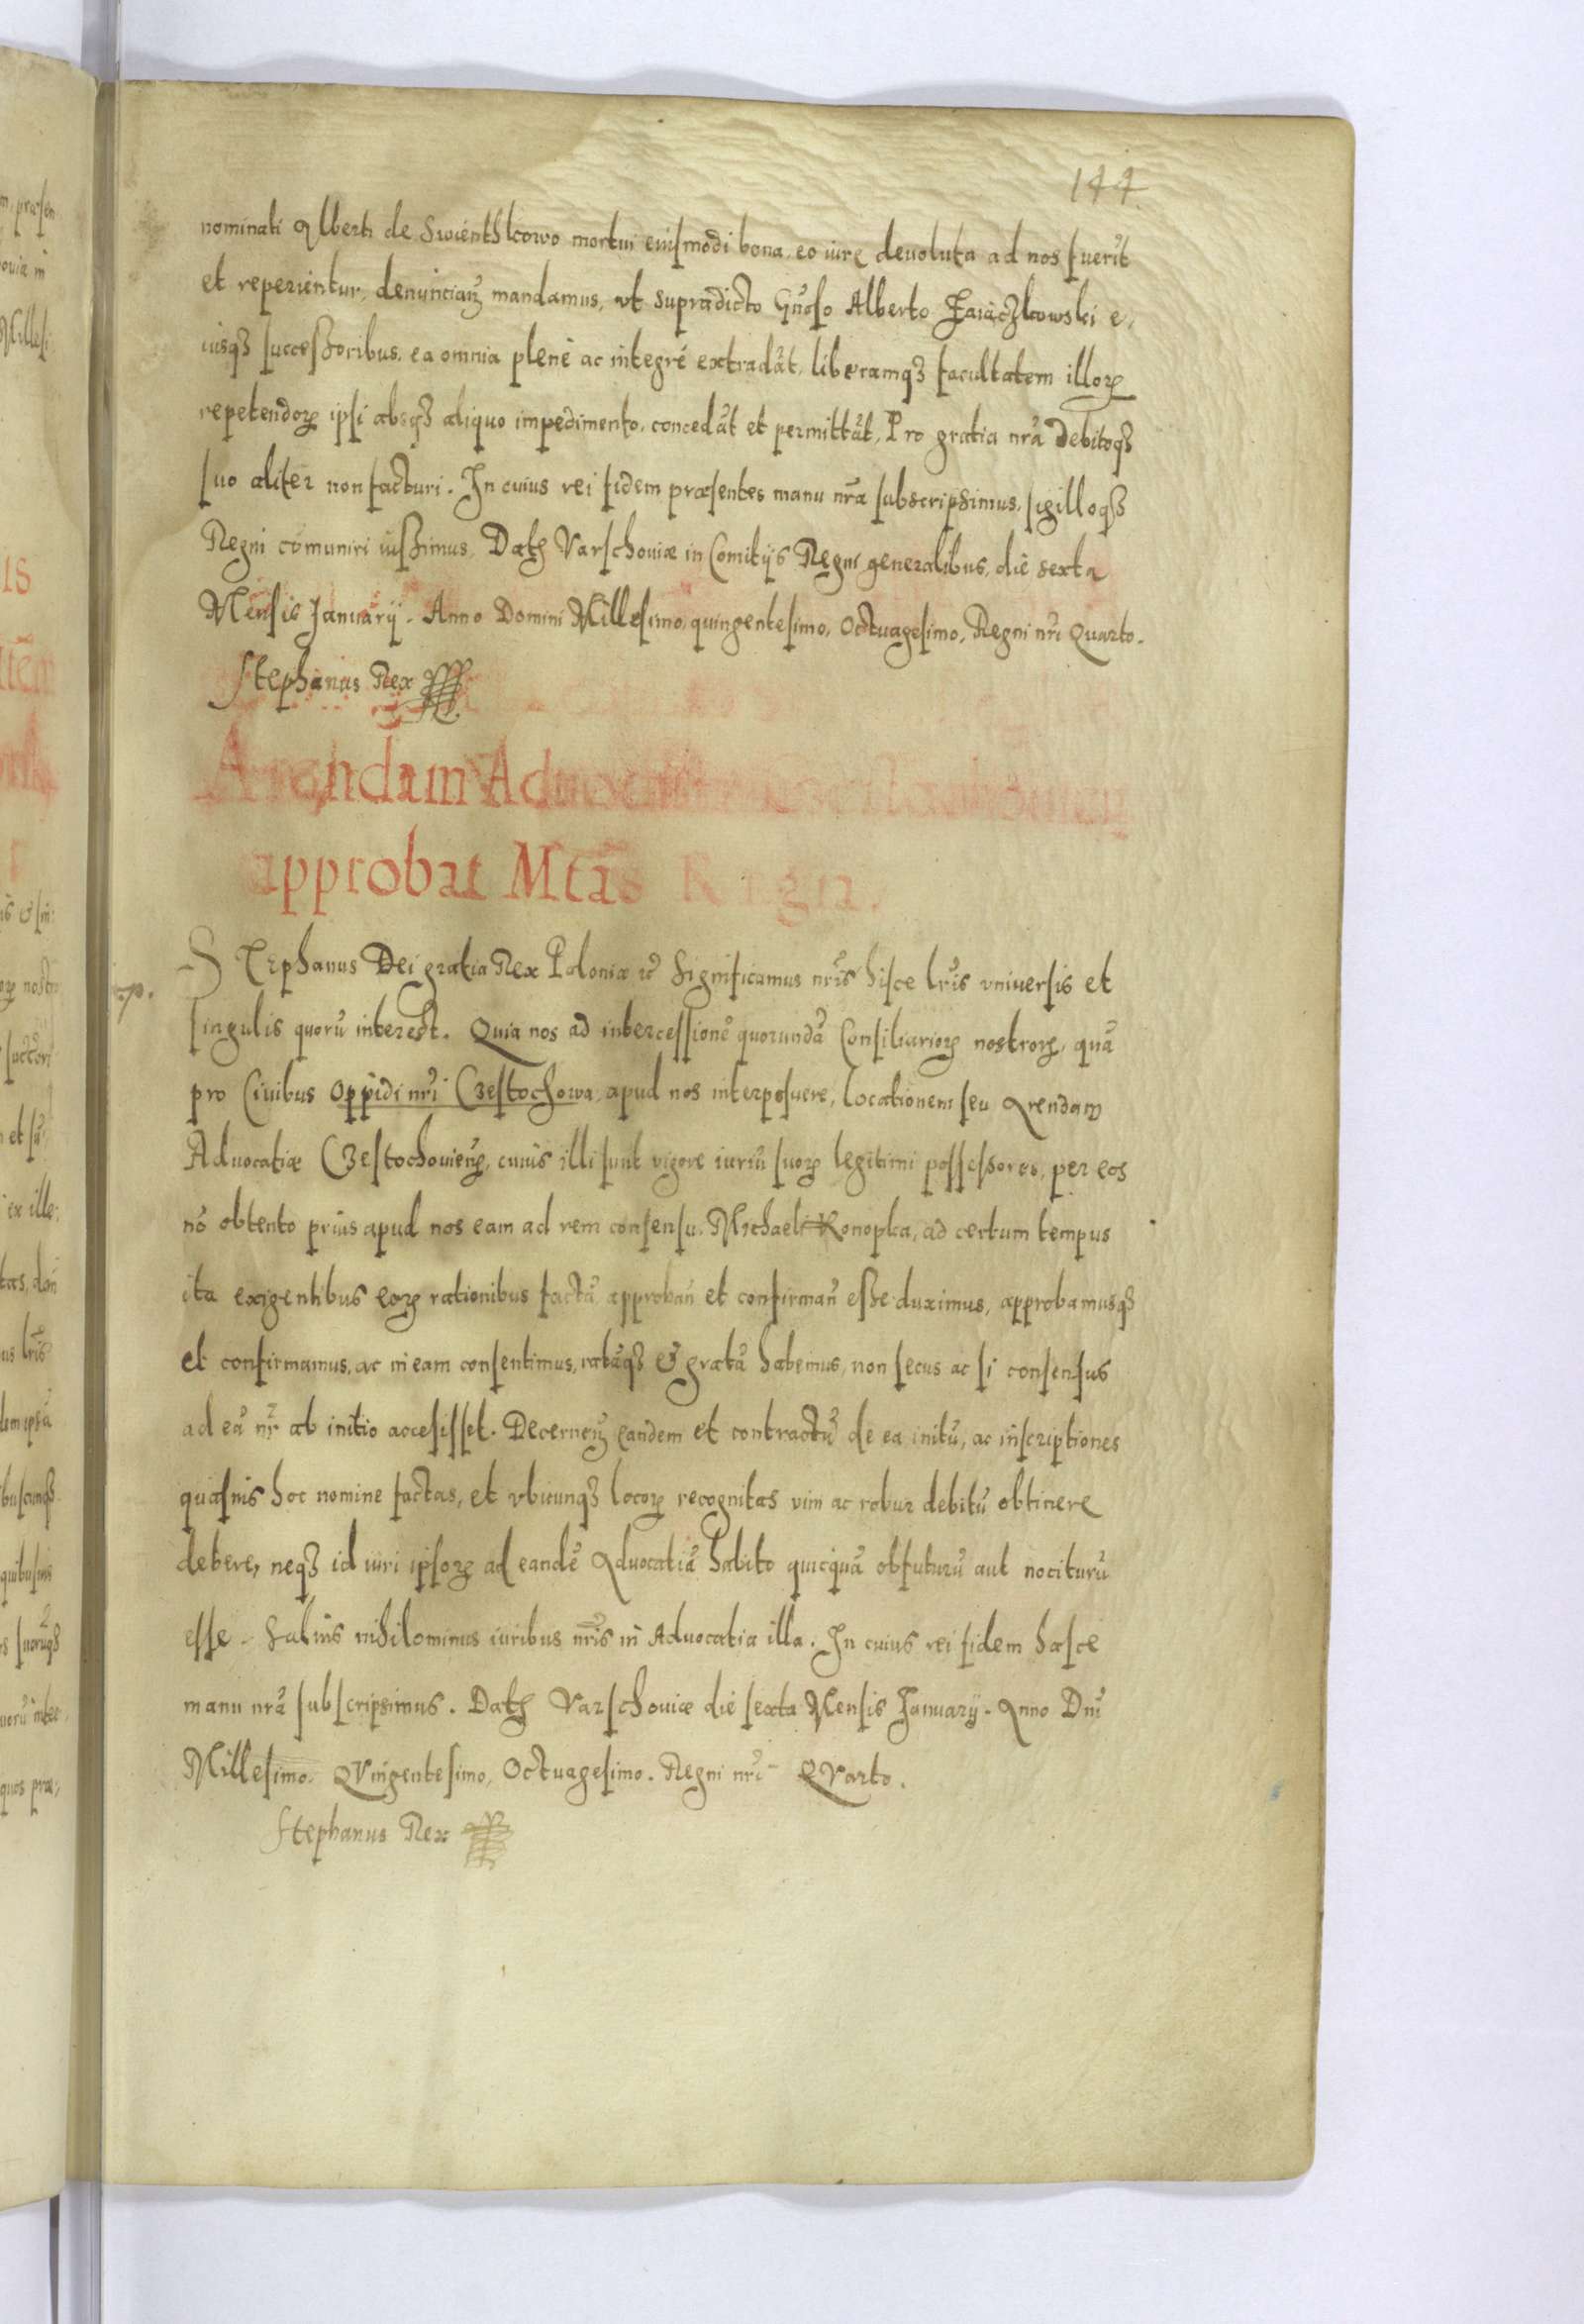 144.
nominati Alberti de Swienthkowo mortui eiusmodi bona, eo iure devoluta ad nos fuerūt
et reperientur, denunciaņ mandamus, vt supradicto Gnoso Alberto Zaiączkowski e,
iusqʒ successoribus, ea omnia plenè ac integrè extradāt, liberamqʒ facultatem illoꝝ
repetendoꝝ ipsi absqʒ aliquo impedimento, concedāt et permittāt, Pro gratia nr̃a debitoqʒ
suo aliter non facturi. In cuius rei fidem præsentes manu nr̃a subscripsimus, sigilloqʒ
Regni cōmuniri iussimus, Datꝫ Varschouiæ in Comitijs Regni generalibus, die sexta
Mensis Januarij. Anno Domini Millesimo, quingentesimo, Octuagesimo, Regni nr̃i Quarto.
Stephanus Rex
Arendam
approbat Mtas Regia.
STephanus Dei gratia Rex Poloniæ ꝛc̃ Significamus nr̃is hisce lr̃is vniuersis et
singulis quorū interest. Quia nos ad intercessionē quorundā Consiliarioꝝ nostroꝝ, quā
pro Ciuibus oppidi nr̃i Czestochowa, apud nos interposuere, locationem seu Arendam
Aduocatiæ Czestochouieņ, cuius illi sunt vigore iuriū suoꝝ legitimi possessores, per eos
nō obtento prius apud nos eam ad rem consensu, Michaeli Konopka, ad certum tempus
ita exigentibus eoꝝ rationibus factā, approbañ et confirmañ esse duximus, approbamusqʒ
et confirmamus, ac in eam consentimus, ratāqʒ & gratā habemus, non secus ac si consensus
ad eā nr̃ ab initio accesisset. Decerneņ eandem et contractū de ea initū, ac inscriptiones
quasuis hoc nomine factas, et vbicunqʒ locoꝝ recognitas vim ac robur debitū obtinere
debere, neqʒ id iuri ipsoꝝ ad eandē Aduocatiā habito quicquā obfuturū aut nociturū
esse. Saluis nihilominus iuribus nr̃is in Aduocatia illa. In cuius rei fidem hasce
manu nr̃a subscripsimus. Datꝫ Varschouiæ die sexta Mensis Januarij. Anno Dnī
Millesimo. Quingentesimo, Octuagesimo. Regni nr̃i Quarto.
Stephanus Rex